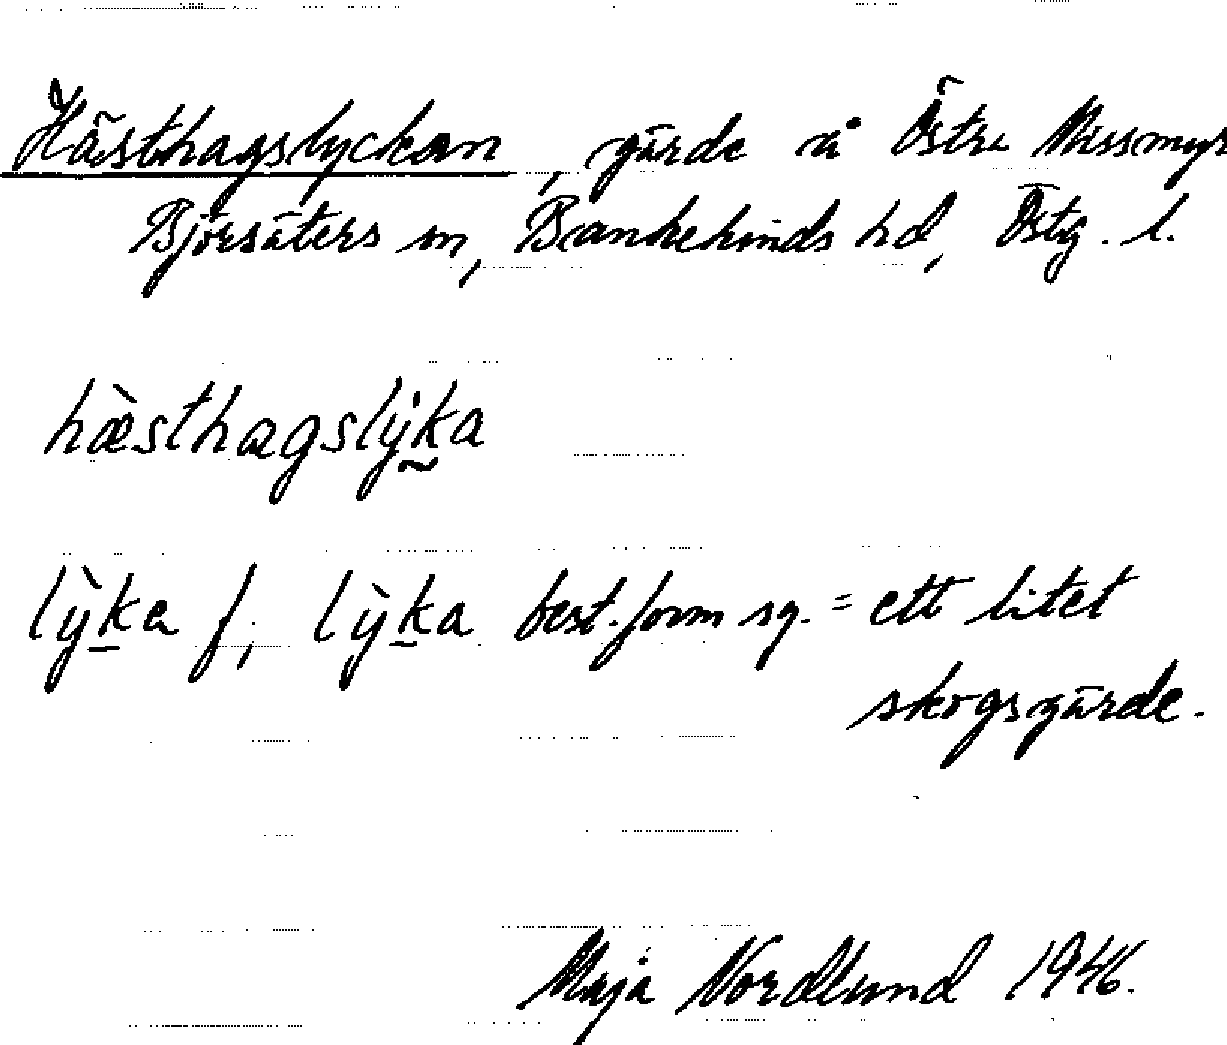 Hästhagslyckan, gärde å Östra Missmyr
Björsäters sn, Bankekinds hd, Östg. l.
hæ̀sthagslẏk̰a
lỳk̲a f, lỳk̲a best. form sg. = ett litet
skogsgärde.
Maja Nordlund 1946.